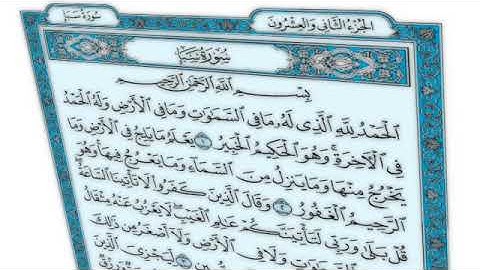 الجُزْءُ الثَّانِي وَالعِشْرُونَ
سُورَةُ سَبَأ
سُورَةُ سَبَإٍ
بِسْمِ ٱللَّهِ ٱلرَّحْمَٰنِ ٱلرَّحِيمِ
ٱلْحَمْدُ لِلَّهِ ٱلَّذِى لَهُۥ مَا فِى ٱلسَّمَٰوَٰتِ وَمَا فِى ٱلْأَرْضِ وَلَهُ ٱلْحَمْدُ
فِى ٱلْءَاخِرَةِ ۚ وَهُوَ ٱلْحَكِيمُ ٱلْخَبِيرُ ١ يَعْلَمُ مَا يَلِجُ فِى ٱلْأَرْضِ وَمَا
يَخْرُجُ مِنْهَا وَمَا يَنزِلُ مِنَ ٱلسَّمَآءِ وَمَا يَعْرُجُ فِيهَا ۚ وَهُوَ
ٱلرَّحِيمُ ٱلْغَفُورُ ٢ وَقَالَ ٱلَّذِينَ كَفَرُوا۟ لَا تَأْتِينَا ٱلسَّاعَةُ ۖ
قُلْ بَلَىٰ وَرَبِّى لَتَأْتِيَنَّكُمْ عَٰلِمِ ٱلْغَيْبِ ۖ لَا يَعْزُبُ عَنْهُ مِثْقَالُ
ٱلسَّمَٰوَٰتِ وَلَا فِى ٱلْأَرْضِ وَلَآ أَصْغَرُ مِن ذَٰلِكَ
٣ لِّيَجْزِىَ ٱلَّذِينَ